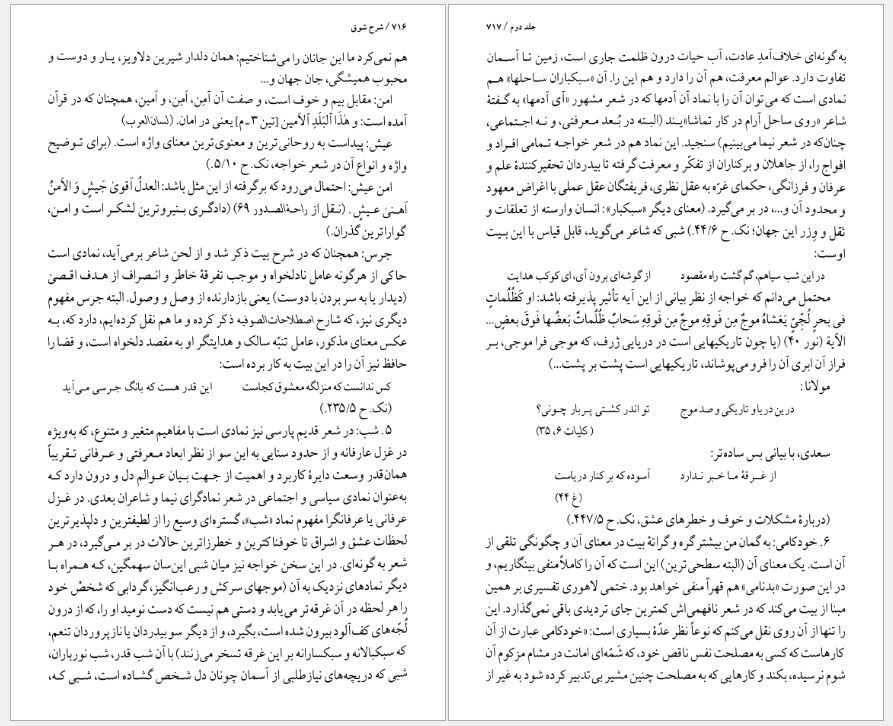 ۷۱۶ / شرح شوق
هم نمی‌کرد ما این جانان را می‌شناختیم: همان دلدار شیرین دلاویز، یار و دوست و
محبوب همیشگی، جان جهان و...
امن: مقابل بیم و خوف است، و صفت آن آمِن، اَمِن، و اَمین، همچنان که در قرآن
آمده است: و هٰذَا الْبَلَدِ الْاَمین [تین ۳ـ م] یعنی در امان. (لسان‌العرب)
عیش: پیداست به روحانی‌ترین و معنوی‌ترین معنای واژه است. (برای توضیح
واژه و انواع آن در شعر خواجه، نک. ح ۵/۱۰.)
امن عیش: احتمال می‌رود که برگرفته از این مثل باشد: العدلُ اَقویٰ جَیشٍ وَ الاَمنُ
اَهنیٰ عیشٍ. (نقل از راحةالصدور ۶۹) (دادگری بنیروترین لشکر است و امن،
گواراترین گذران.)
جرس: همچنان که در شرح بیت ذکر شد و از لحن شاعر برمی‌آید، نمادی است
حاکی از هرگونه عامل نادلخواه و موجب تفرقهٔ خاطر و انصراف از هدف اقصیٰ
(دیدار یا به سر بردن با دوست) یعنی بازدارنده از وصل و وصول. البته جرس مفهوم
دیگری نیز، که شارح اصطلاحات‌الصوفیه ذکر کرده و ما هم نقل کرده‌ایم، دارد که، به
عکس معنای مذکور، عامل تنبّه سالک و هدایتگر او به مقصد دلخواه است، و قضا را
حافظ نیز آن را در این بیت به کار برده است:
کس ندانست که منزلگه معشوق کجاست این قدر هست که بانگ جرسی می‌آید
(نک. ح ۲۳۵/۵.)
۵. شب: در شعر قدیم پارسی نیز نمادی است با مفاهیم متغیر و متنوع، که به‌ویژه
در غزل عارفانه و از حدود سنایی به این سو از نظر ابعاد معرفتی و عرفانی تقریباً
همان‌قدر وسعت دایرهٔ کاربرد و اهمیت از جهت بیان عوالم دل و درون دارد که
به‌عنوان نمادی سیاسی و اجتماعی در شعر نمادگرای نیما و شاعران بعدی. در غزل
عرفانی یا عرفانگرا مفهوم نماد «شب»، گستره‌ای وسیع را از لطیفترین و دلپذیرترین
لحظات عشق و اشراق تا خوفناکترین و خطرزاترین حالات در بر می‌گیرد، در هر
شعر به گونه‌ای. در این سخن خواجه نیز میان شبی این‌سان سهمگین، که همراه با
دیگر نمادهای نزدیک به آن (موجهای سرکش و رعب‌انگیز، گردابی که شخصْ خود
را هر لحظه در آن غرقه‌تر می‌یابد و دستی هم نیست که دست نومید او را، که از درون
لُجّه‌های کف‌آلود بیرون شده است، بگیرد، و از دیگر سو بیدردان یا ناز پروردان تنعم،
که سبکبالانه و سبکسارانه بر این غرقه تسخر می‌زنند) با آن شب قدر، شب نورباران،
شبی که دریچه‌های نیازطلبی از آسمان چونان دل شخص گشاده است، شبی که،
جلد دوم / ۷۱۷
به گونه‌ای خلاف‌آمدِ عادت، آب حیات درون ظلمت جاری است، زمین تا آسمان
تفاوت دارد. عوالم معرفت، هم آن را دارد و هم این را. آن «سبکباران ساحلها» هم
نمادی است که می‌توان آن را با نماد آن آدمها که در شعر مشهور «آی آدمها» به گفتهٔ
شاعر «روی ساحل آرام در کار تماشا»یند (البته در بُعد معرفتی، و نه اجتماعی،
چنان‌که در شعر نیما می‌بینیم) سنجید. این نماد هم در شعر خواجه تمامی افراد و
افواج را، از جاهلان و برکناران از تفکّر و معرفت گرفته تا بیدردان تحقیرکنندهٔ علم و
عرفان و فرزانگی، حکمای غرّه به عقل نظری، فریفتگان عقل عملی با اغراض معهود
و محدود آن و...، در بر می‌گیرد. (معنای دیگر «سبکبار»: انسان وارسته از تعلقات و
ثقل و وِزر این جهان؛ نک. ح ۴۴/۶.) شبی که شاعر می‌گوید، قابل قیاس با این بیت
اوست:
در این شب سیاهم، گم گشت راه مقصود از گوشه‌ای برون آی، ای کوکب هدایت
محتمل می‌دانم که خواجه از نظر بیانی از این آیه تأثیر پذیرفته باشد: او کَظُلُماتٍ
فی بحرٍ لُجّیٍّ یَغشاهُ موجٌ مِن فَوقِهِ موجٌ مِن فَوقِهِ سَحابٌ ظُلُماتٌ بَعضُها فَوقَ بعضٍ...
الآیة (نور ۴۰) (یا چون تاریکیهایی است در دریایی ژرف، که موجی فرا موجی، بر
فراز آن ابری آن را فرو می‌پوشاند، تاریکیهایی است پشت بر پشت...)
مولانا:
درین دریا و تاریکی و صد موج تو اندر کشتی پربار چونی؟
(کلیات ۶، ۳۵)
سعدی، با بیانی بس ساده‌تر:
از غرقهٔ ما خبر ندارد آسوده که بر کنار دریاست
(غ ۴۴)
(دربارهٔ مشکلات و خوف و خطرهای عشق، نک. ح ۴۴۷/۵.)
۶. خودکامی: به گمان من بیشتر گره و گرانهٔ بیت در معنای آن و چگونگی تلقی از
آن است. یک معنای آن (البته سطحی‌ترین) این است که آن را کاملاً منفی بینگاریم، و
در این صورت «بدنامی» هم قهراً منفی خواهد بود. ختمی لاهوری تفسیری بر همین
مبنا از بیت می‌کند که در شعر نافهمی‌اش کمترین جای تردیدی باقی نمی‌گذارد. این
را تنها از آن روی نقل می‌کنم که نوعاً نظر عدّهٔ بسیاری است: «خودکامی عبارت از آن
کارهاست که کسی به مصلحت نفس ناقص خود، که شَمّه‌ای امانت در مشام مزکوم آن
شوم نرسیده، بکند و کارهایی که به مصلحت چنین مشیر بی‌تدبیر کرده شود به غیر از